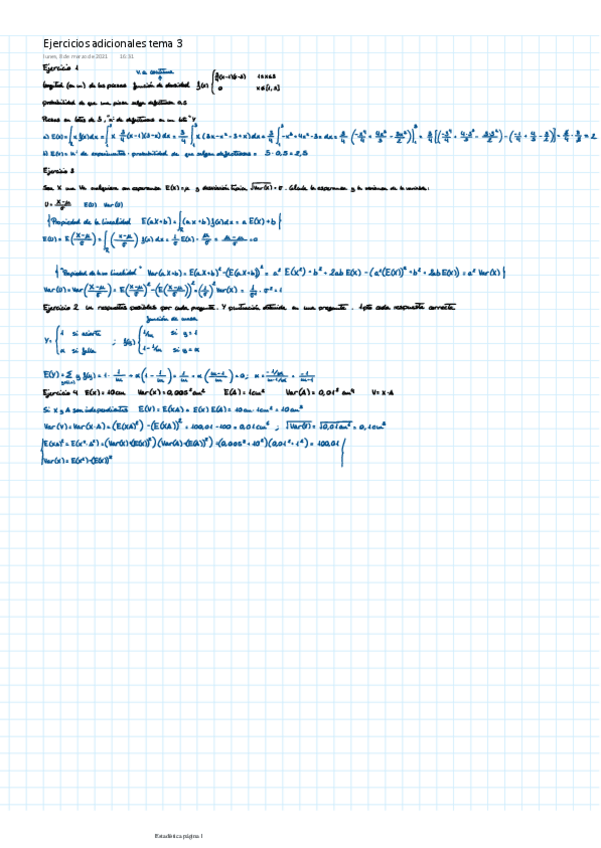 Ejercicios adicionales tema 3
lunes, 8 de marzo de 2021 16:31
Ejercicio 1
v.a. continua
longitud (en m) de las piezas función de densidad f(x) { 3/4(x-1)(3-x) 1≤x≤3
0 x∉[1,3]
probabilidad de que una pieza salga defectuosa 0,5
Piezas en lotes de 5, "nº de defectuosas en un lote" Y
Ejercicio 3
Sea X una Va cualquiera con esperanza E(X)=μ y desviación típica √Var(X)=σ. Calcula la esperanza y la varianza de la variable:
U = (X-μ)/σ E(U) Var(U)
{Propiedad de la linealidad E(aX+b) = ∫(ax+b)f(x)dx = aE(X)+b}
E(U) = E((X-μ)/σ) = ∫((x-μ)/σ) f(x)dx = 1/σ E(X) - μ/σ = (μ-μ)/σ = 0
{"Propiedad de la no linealidad" Var(aX+b) = E(aX+b)² - (E(aX+b))² = a² E(X²) + b² + 2ab E(X) - (a²(E(X))² + b² + 2ab E(X)) = a² Var(X)}
Var(U) = Var((X-μ)/σ) = E((X-μ)/σ)² - (E((X-μ)/σ))² = (1/σ)² Var(X) = 1/σ² · σ² = 1
Ejercicio 2 m respuestas posibles por cada pregunta. Y puntuación obtenida en una pregunta. 1 pto cada respuesta correcta
función de masa
Y = { 1 si acierto ; f(y) { 1/m si y=1
x si falla 1-1/m si y=x
E(Y) = Σ y f(y) = 1 · 1/m + x(1 - 1/m) = 1/m + x((m-1)/m) = 0;
Ejercicio 4 E(X) = 10cm Var(X) = 0,005²cm² E(A) = 1cm² Var(A) = 0,01² cm⁴ V = X·A
Si X y A son independientes E(V) = E(XA) = E(X) E(A) = 10cm · 1cm² = 10cm³
Var(V) = Var(X·A) = (E(XA)²) - (E(XA))² = 100,01 - 100 = 0,01cm⁶ ; √Var(V) = √0,01cm⁶ = 0,1cm³
Var(X) = E(X²) - (E(X))²
Estadística página 1